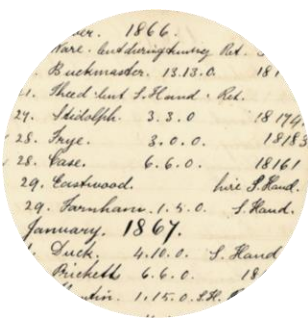 ver. 1866.
Ware. lent during tuning Ret.
Buckmaster. 13.13.0. 181
1. Theed lent S. Hand. Ret.
27. Stidolph. 3.3.0 18174
28. Frye. 3.0.0. 18183
28. Case. 6.6.0. 18161
29. Eastwood. hire S. Hand.
29. Farnham. 1.5.0. S. Hand.
January. 1867.
Duck. 4.10.0. S. Hand
Prickett 6.6.0. 18
tin. 1.15.0. S.H.